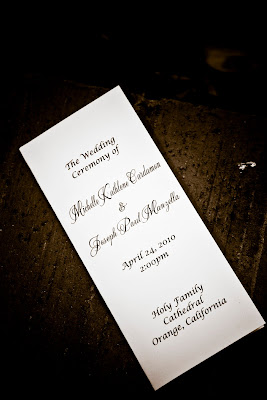 The Wedding
Ceremony of
Michelle Kathleen Cardamon
&
Joseph Paul Manzella
April 24, 2010
2:00pm
Holy Family
Cathedral
Orange, California